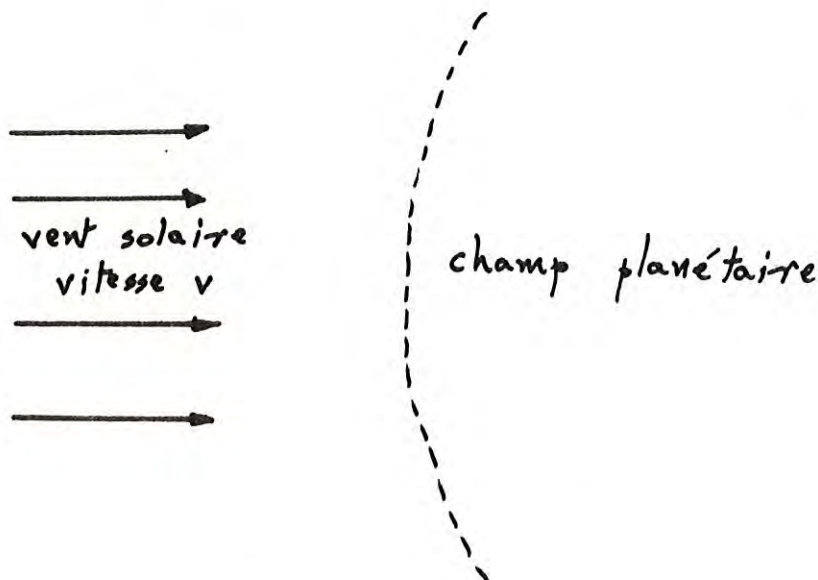 vent solaire
vitesse v
champ planétaire